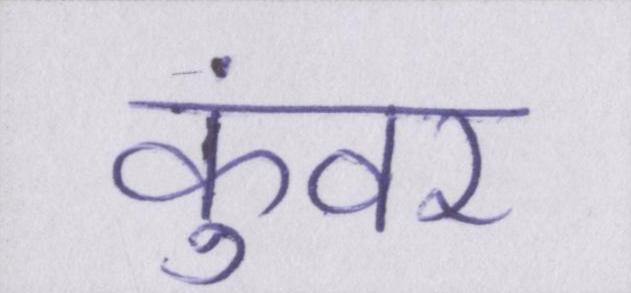 कुंवर